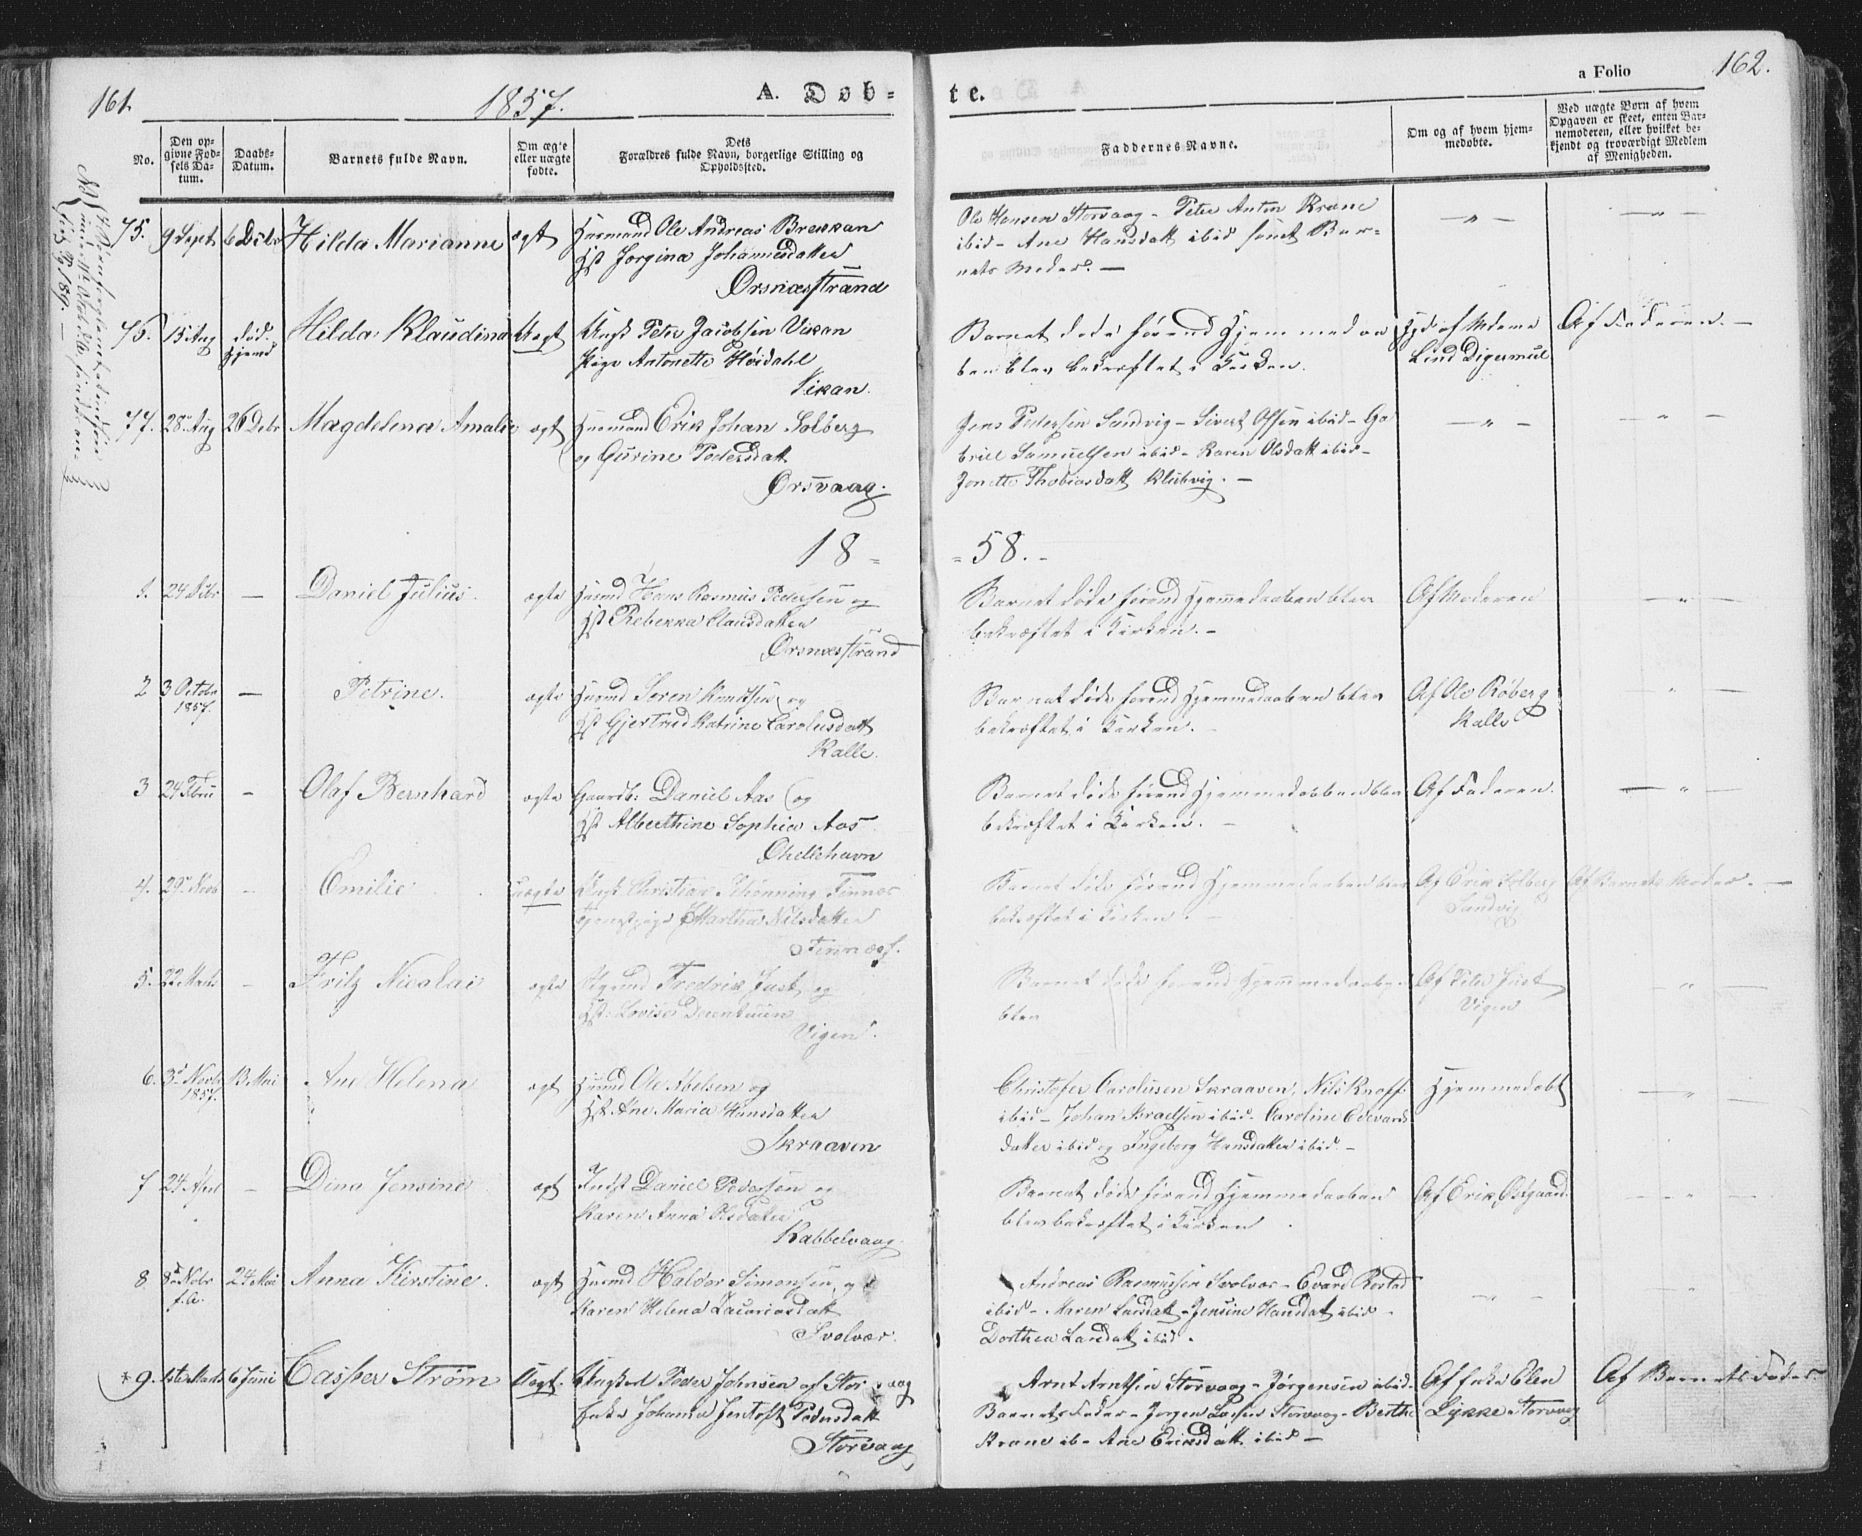 161.
1857.
A. Døb=
te.
a Folio
162.
No.
Den op-
givne Fød-
sels Da-
tum.
Daabs-
Datum.
Barnets fulde Navn.
Om ægte
eller uægte
fødte.
Dets
Forældres fulde Navn, borgerlige Stilling og
Opholdssted.
Faddernes Navne.
Om og af hvem hjem-
medøbte.
Ved uægte Børn af hvem
Opgaven er skeet, enten Bar-
nemoderen, eller hvilket be-
kjendt og troværdigt Medlem
af Menigheden.
75. 9 Sept 6 Dcbr Hilda Marianne ægt Huusmand Ole Andreas Brekkan
Hst Jorgina Johannesdatter
Ørsnæsstrand
Ole Hansen Storvaag - Peter Anton Krane
ibid - Ane Hansdatt ibid samt Bar=
nets Moder. —
76. 15 Aug død Hjemd Hilda Klaudina Uægt Ungk Peter Jacobsen Vikan
Pige Antonette Høidahl
Vikan.
Barnet døde førend Hjemmedaa
ben blev bekræftet i Kirken.
Hjd af Madme
Lind Digermul
Af Faderen. —
77. 28 Aug 26 Dcbr Magdelena Amalie ægt Huusmand Erik Johan Solberg
og Gurine Pedersdatt
Ørsvaag.
Jens Pedersen Sandvig - Sivert Olsen ibid - Ga
briel Samuelsen ibid - Karen Olsdatt ibid -
Jonette Thobiasdatt Klubvig. —
18 = = 58. -
1. 24 Dcbr — Daniel Julius. ægte Husmd Hans Rasmus Pedersen og
Hst Rebekka Clausdatter
Ørsnæsstrand
Barnet døde førend Hjemmedaaben blev
bekræftet i Kirken. -
Af Moderen
2 3 Octobr 1857. — Petrine. ægte Husmd Søren Knudsen og
Hst Gjertrud Katrine Carolusdatt
Kalle.
Barnet døde førend Hjemmedaaben blev
bekræftet i Kirken.
Af Ole Røberg
Kalle
3 24 Febru - Olaf Bernhard ægte Gaardb: Daniel Aas og
Hst Alberthine Sophia Aas
Øhellehavn
Barnet døde førend Hjemmedaaben blev
bekræftet i Kirken. -
Af Faderen.
4. 29 Novb - Emilie uægte Ungk Christian Schønning Finnæs
Tjenestpige Martha Nilsdatter
Finnæs.
Barnet døde førend Hjemmedaaben blev
bekræftet i Kirken. -
Af Erik Solberg
Sandvig
Af Barnets Moder. —
5. 22 Marts - Fritz Nicolai ægte Fredrik Just og
Hst: Lovise
Vigen.
Barnet døde førend Hjemmedaaben
blev
Af Peder Just
Vigen
6. 3 Novb 1857. 13 Mai Ane Helena ægt Husmd Ole Abelsen og
Hst Ane Maria Hansdatter
Skraaven
Christofer Carolusen Skraaven, Nils Knoff
ibid - Johan Israelsen ibid - Caroline Edevards
datter ibid og Ingeborg Hansdatter ibid. -
Hjemmedøbt
7 24 April - Dina Jensine ægt Indst Daniel Pedersen og
Karen Anna Olsdatter
Kabbelvaag.
Barnet døde førend Hjemmedaaben
blev bekræftet i Kirken.
Af Erik Østgaard.
8 8 Nobr f.A. 24 Mai Anna Kirstine. ægt Husmd Haldor Simonsen og
Karen Helena Zacariasdatt
Svolvær.
Andreas Rasmussen Svolvær - Evard Rostad
ibid - Maren Larsdatt - Jensine Hansdat ibid -
Dorthea Larsdatt ibid.
* 9. 1ste Marts 6 Juni Casper Strøm Uægt. Ungkarl Peder Johnsen af Storvaag
Enke Johanna Jentoft Pedersdatt
Storvaag
Arnt Arntsen Storvaag - Jørgensen ibid -
Barnets Fader - Jørgen Larsen Storvaag - Berthe
Krane ib - Ane Eriksdatt ibid —
Af Enke Elen
Lykke Storvaag
Af Barnets Fader